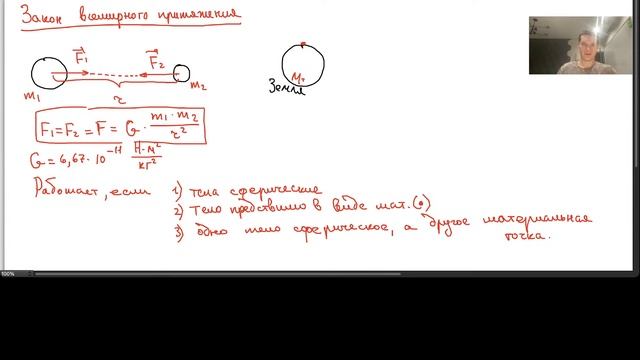 Закон всемирного притяжения
F₁ F₂
m₁ r m₂
F₁ = F₂ = F = G · m₁ · m₂ / r²
G = 6,67 · 10⁻¹¹ Н · м² / кг²
M₃
Земля
Работает, если 1) тела сферические
2) тело представимо в виде мат. (•)
3) одно тело сферическое, а другое материальная
точка.
100%